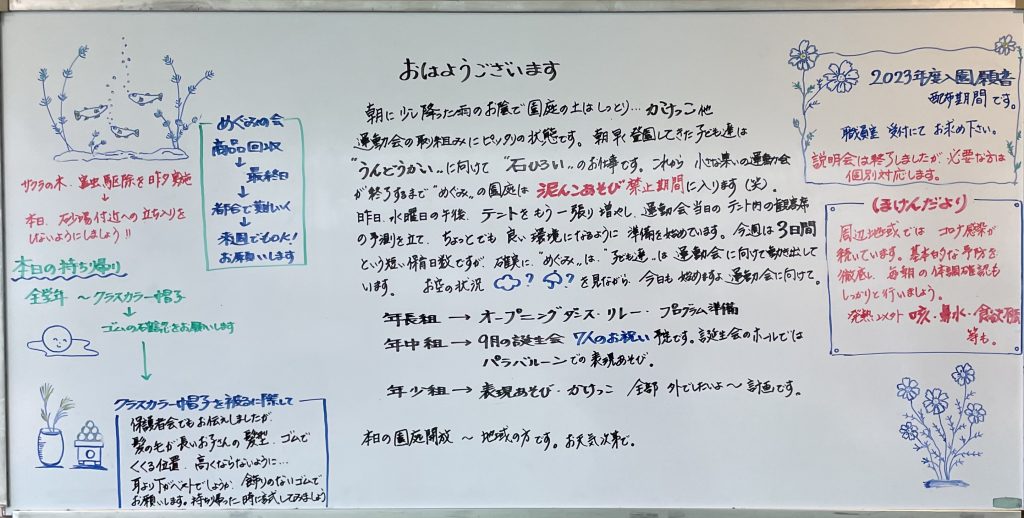 おはようございます
朝に少し降った雨のお陰で園庭の土はしっとり…かけっこ他
運動会の取り組みにピッタリの状態です。朝早く登園してきた子ども達は
"うんどうかい"に向けて "石ひろい"のお仕事です。これから 小さな集いの運動会
が終了するまで"めぐみ"の園庭は 泥んこあそび禁止期間に入ります(笑)。
昨日、水曜日の午後、テントをもう一張り増やし、運動会当日のテント内の観客席
の予測を立て、ちょっとでも 良い環境になるように 準備を始めています。今週は3日間
という短い保育日数ですが、確実に、"めぐみ"は、"子ども達"は 運動会に向けて動き出して
います。 お空の状況 ? ? を見ながら、今日も始めますよ 運動会に向けて。
年長組 → オープニングダンス・リレー・プログラム準備
年中組 → 9月の誕生会 7人のお祝い 予定です。誕生会のホールでは
パラバルーンでの表現あそび。
年少組 → 表現あそび・かけっこ 全部 外でしたいよ〜 計画です。
本日の園庭開放 〜 地域の方です。お天気次第で。
サクラの木、害虫駆除を昨夕実施
本日、砂場付近への立ち入りを
しないようにしましょう!!
めぐみの会
商品回収
最終日
都合で難しく
来週でもOK!
お願いします
本日の持ち帰り
全学年 〜クラスカラー帽子
ゴムの確認をお願いします
クラスカラー帽子を被るに際して
保護者会でもお伝えしましたが、
髪の毛が長いお子さんの髪型、ゴムで
くくる位置、高くならないように…
耳より下がベストでしょうか、飾りのないゴムで
お願いします。持ち帰った時に試してみましょう
2023年度入園願書
配布期間です。
職員室 受付にて お求め下さい。
説明会は終了しましたが 必要な方は
個別対応します。
ほけんだより
周辺地域では コロナ感染が
続いています。基本的な予防を
徹底し、毎朝の体調確認も
しっかりと行いましょう。
発熱以外 咳・鼻水・食欲不振
等も。